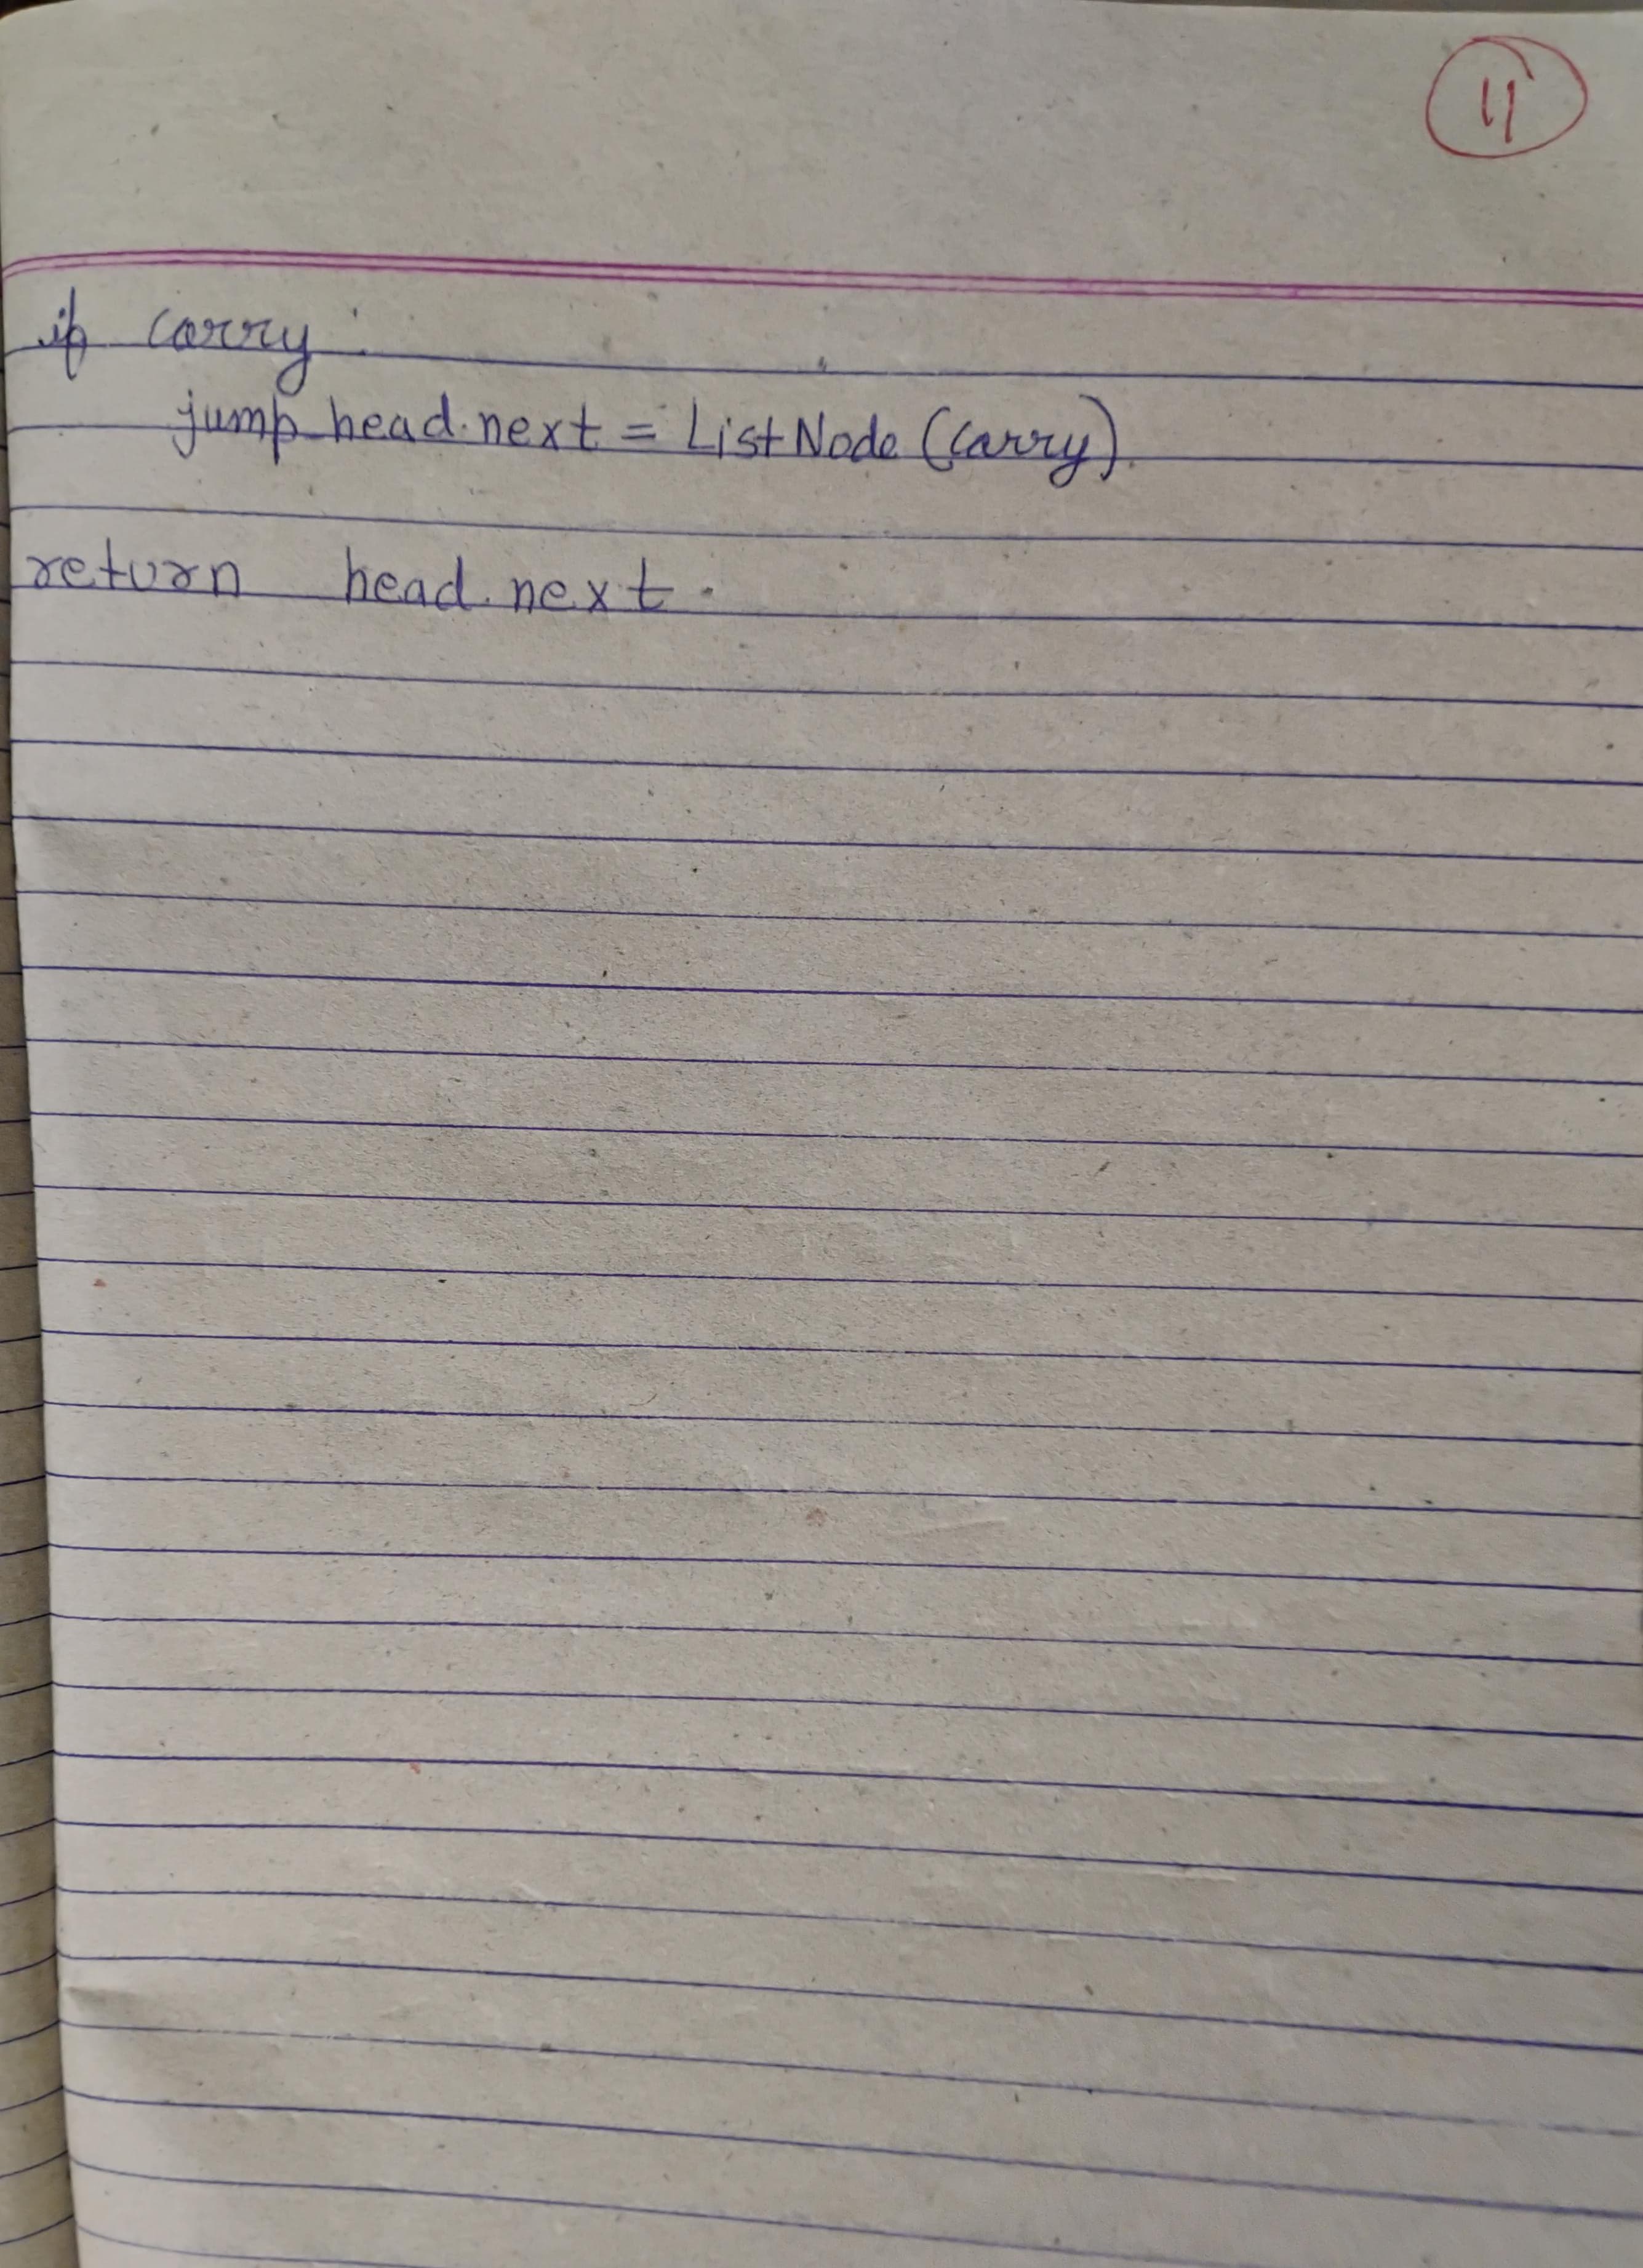 11
if carry:
jump_head.next = ListNode (carry)
return head.next.